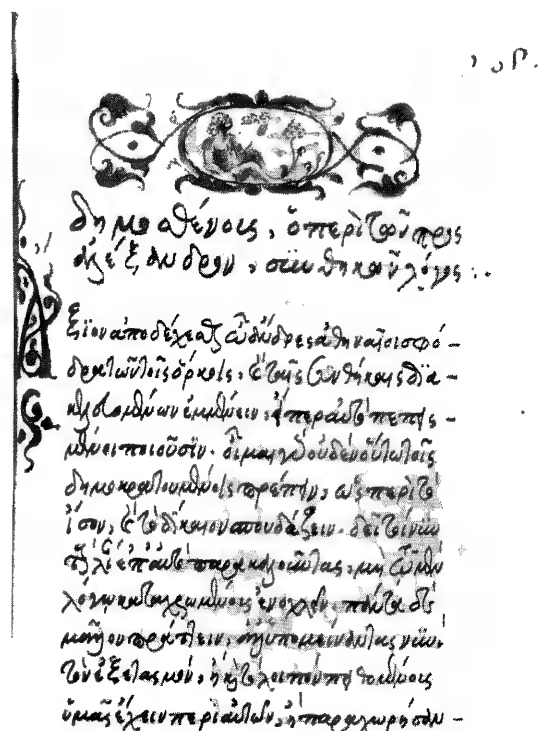 δημοσθένους, ὁ περὶ τῶν πρὸς
ἀλέξανδρον, συνθηκῶν λόγος :.
Ἄξιον ἀποδέχεσθαι ὦ ἄνδρες ἀθηναῖοι σφό-
δρα τῶν τοῖς ὅρκοις, καὶ ταῖς συνθήκαις δια-
κελευομένων ἐμμένειν, εἴπερ αὐτὸ πεπεισ-
μένοι ποιοῦσιν. οἶμαι γὰρ οὐδὲν οὕτω τοῖς
δημοκρατουμένοις πρέπειν, ὡς περὶ τὸ
ἴσον, καὶ τὸ δίκαιον σπουδάζειν. δεῖ τοίνυν
τοὺς λίαν ἐπὶ ταῦτα παρακαλοῦντας, μὴ τῷ μὲν
λόγῳ καταχρωμένους ἐνοχλεῖν, πάντα δὲ
μᾶλλον πράττειν, ἀλλ' ὑπομείναντας νῦν
τὸν ἐξετασμόν, ἢ καὶ τὸ λοιπὸν πειθομένους
ὑμᾶς ἔχειν περὶ αὐτῶν, ἢ παραχωρήσαν-